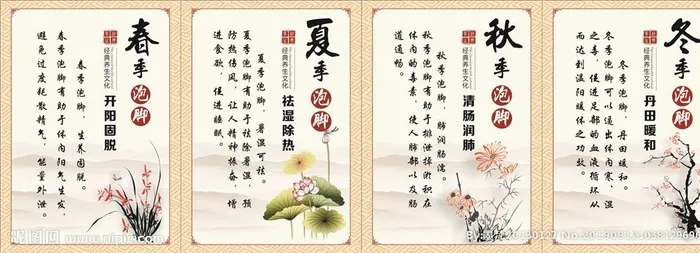 春季泡脚
经典养生文化
开阳固脱
春季泡脚，生养固脱。
春季泡脚有助于体内阳气生发，
避免过度耗散精气，能量外泄。
夏季泡脚
经典养生文化
祛湿除热
夏季泡脚，暑湿可祛。
夏季泡脚有助于祛除暑湿，预
防热伤风，让人精神振奋，增
进食欲，促进睡眠。
秋季泡脚
经典养生文化
清肠润肺
秋季泡脚，肺润肠濡。
秋季泡脚有助于排泄掉淤积在
体内的毒素，使人肺部以及肠
道通畅。
冬季泡脚
经典养生文化
丹田暖和
冬季泡脚，丹田暖和。
冬季泡脚可以逼出体内寒、湿
之毒，促进足部的血液循环从
而达到温阳暖体之功效。
昵图网
www.nipic.com